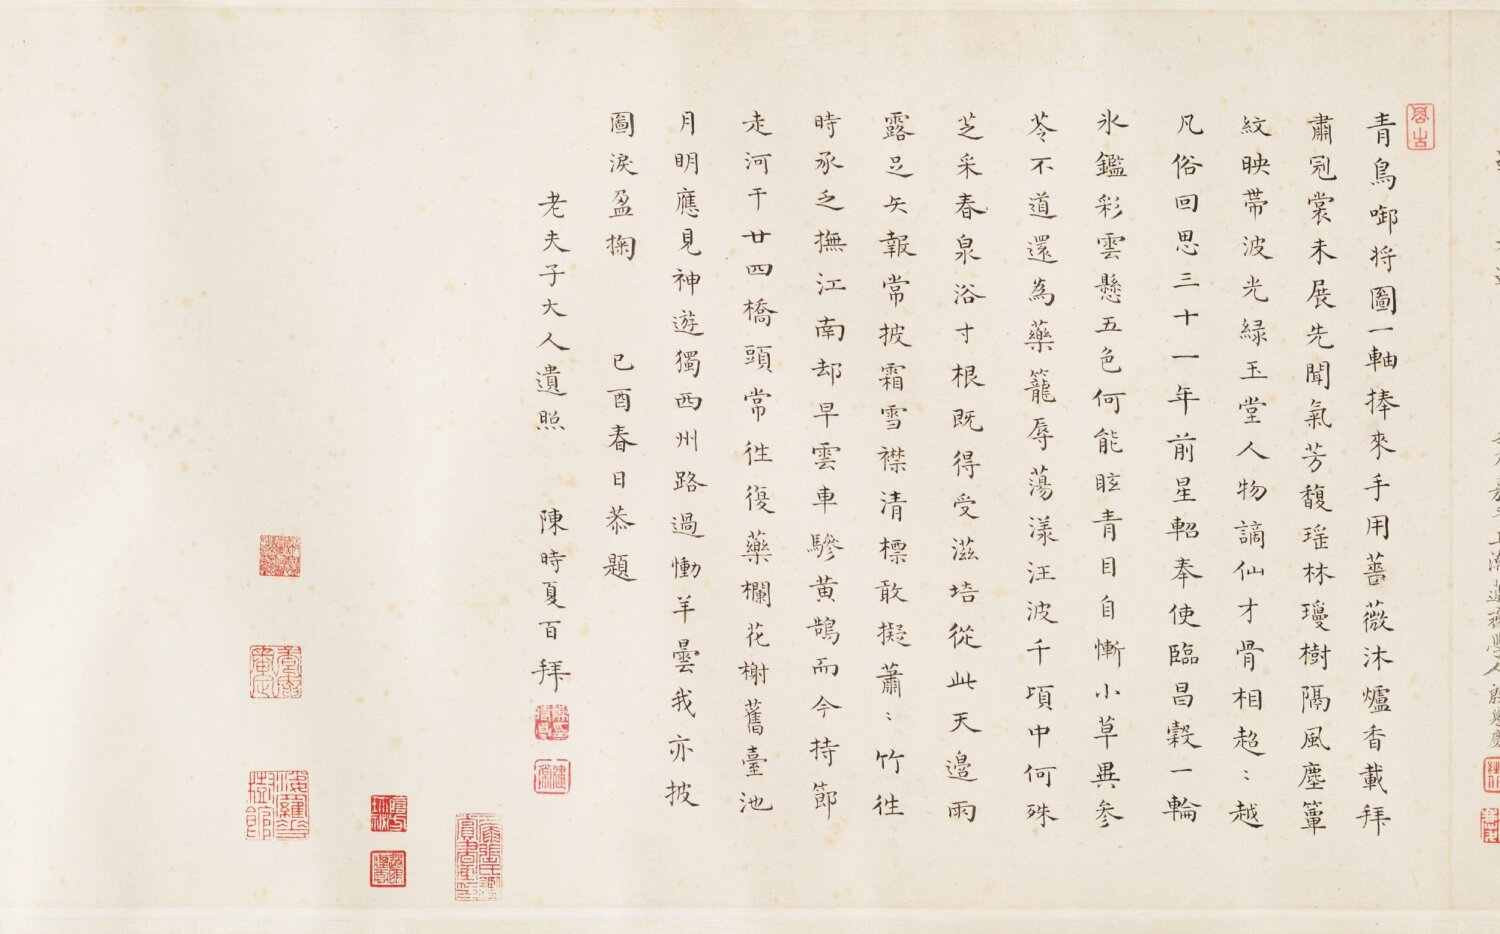 青鳥啣将圖一軸捧來手用薔薇沐爐香載拜
肅冠裳未展先聞氣芳馥瑶林瓊樹隔風塵簟
紋映帶波光緑玉堂人物謫仙才骨相超〻越
凡俗回思三十一年前星軺奉使臨昌穀一輪
氷鑑彩雲懸五色何能眩青目自慚小草異參
苓不道還為藥籠辱蕩漾汪波千頃中何殊
芝采春泉浴寸根既得受滋培從此天邉雨
露足矢報常披霜雪襟清標敢擬蕭〻竹徃
時承乏撫江南却早雲車驂黄鵠而今持節
走河干廿四橋頭常徃復藥欄花榭舊臺池
月明應見神遊獨西州路過慟羊曇我亦披
圖淚盈掬 己酉春日恭題
老夫子大人遺照 陳時夏百拜